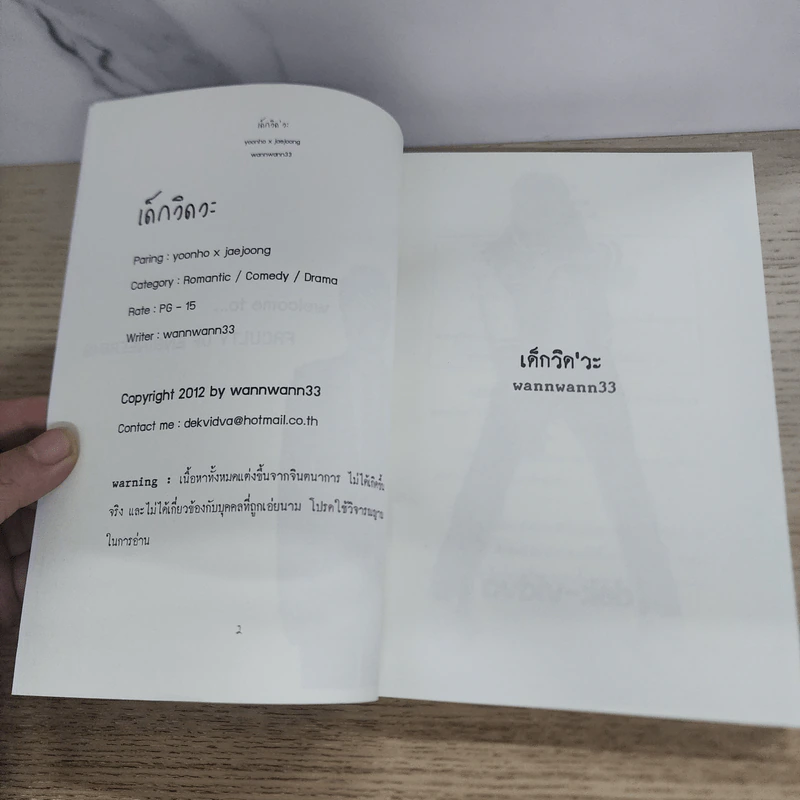 เด็กวิด'วะ
yoonho x jaejoong
wannwann33
เด็กวิดวะ
Paring : yoonho x jaejoong
Category : Romantic / Comedy / Drama
Rate : PG - 15
Writer : wannwann33
Copyright 2012 by wannwann33
Contact me : dekvidva@hotmail.co.th
warning : เนื้อหาทั้งหมดแต่งขึ้นจากจินตนาการ ไม่ได้เกิดขึ้น
จริง และไม่ได้เกี่ยวข้องกับบุคคลที่ถูกเอ่ยนาม โปรดใช้วิจารณญาณ
ในการอ่าน
2
เด็กวิด'วะ
wannwann33